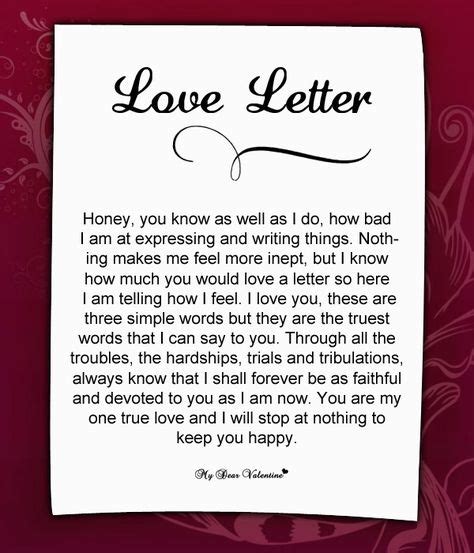 Love Letter
Honey, you know as well as I do, how bad
I am at expressing and writing things. Noth-
ing makes me feel more inept, but I know
how much you would love a letter so here
I am telling how I feel. I love you, these are
three simple words but they are the truest
words that I can say to you. Through all the
troubles, the hardships, trials and tribulations,
always know that I shall forever be as faithful
and devoted to you as I am now. You are my
one true love and I will stop at nothing to
keep you happy.
My Dear Valentine